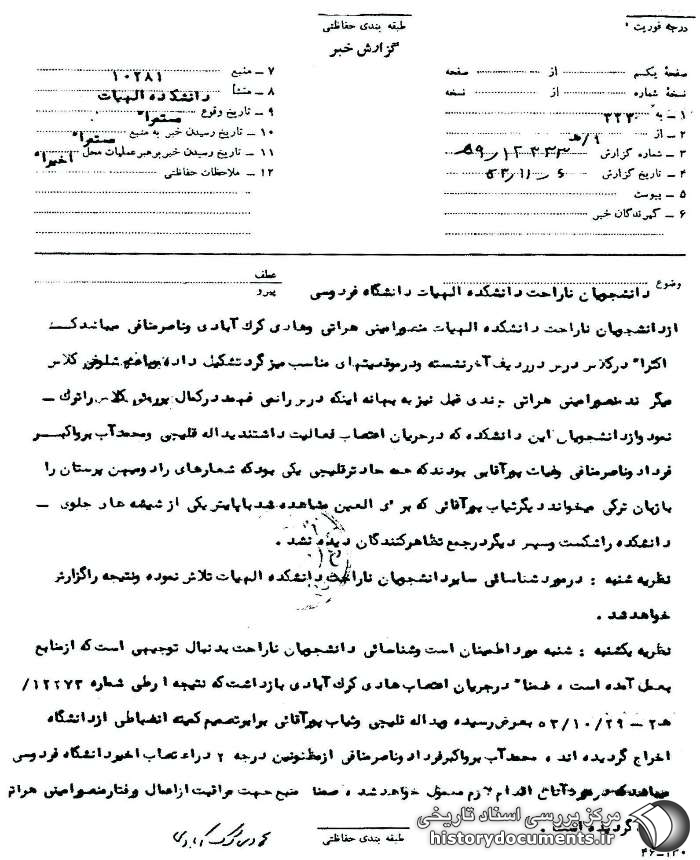 درجه فوریت
طبقه بندی حفاظتی
گزارش خبر
صفحهٔ یکم از صفحه
نسخهٔ شماره از نسخه
۱ ـ به ۲۲۳
۲ ـ از ۹/هـ
۳ ـ شماره گزارش
۴ ـ تاریخ گزارش
۵ ـ پیوست
۶ ـ گیرندگان خبر
۷ ـ منبع ۱۰۲۸۱
۸ ـ منشأ دانشکده الهیات
۹ ـ تاریخ وقوع
۱۰ ـ تاریخ رسیدن خبر به منبع
۱۱ ـ تاریخ رسیدن خبر برهبر عملیات محل اخیرا"
۱۲ ـ ملاحظات حفاظتی
موضوع
عطف
پیرو
دانشجویان ناراحت دانشکده الهیات دانشگاه فردوسی
ازدانشجویان ناراحت دانشکده الهیات منصورامینی هراتی وهادی کرک آبادی وناصرمنافی میباشدکه
اکثرا" درکلاس درس درردیف آخرنشسته ودرموقعیتهای مناسب میزگردتشکیل داده شلوغی کلاس
میگردند منصورامینی هراتی چندی قبل نیزبه بهانه اینکه درس رانمی فهمد درکمال کلاس راترک ـ
نمود وازدانشجویان این دانشکده که درجریان اعتصاب فعالیت داشتندیداله قلیچی ومحمدآب برواکبر
فرداد وناصرمنافی وغیاث پورآقایی بودندکه همه حادترقلیچی یکی بودکه شعارهای رادومیهن پرستان را
بازبان ترکی میخواند دیگرغیاث پورآقائی که برأی العین مشاهده شدباپایش یکی از شیشه های جلوی ـ
دانشکده راشکست وسپس دیگردرجمع تظاهرکنندگان دیده نشد .
نظریه شنبه : درمورد شناسائی سایردانشجویان ناراحت دانشکده الهیات تلاش نموده ونتیجه راگزارش
خواهدشد .
نظریه یکشنبه : شنبه مورد اطمینان است وشناسائی دانشجویان ناراحت بدنبال توجیهی است که ازمنابع
بعمل آمده است . ضمنا" درجریان اعتصاب هادی کرک آبادی بازداشت که نتیجه طی شماره ۱۲۲۷۳/
هـ۲ ـ ۵۳/۱۰/۲۹ بعرض رسیده ویداله قلیچی وغیاث پورآقائی برابرتصمیم کمیته انضباطی ازدانشگاه
اخراج گردیده اند . محمدآب برواکبرفرداد وناصرمنافی ازمظنونین درجه ۲ دراعتصاب اخیردانشگاه فردوسی
میباشندکه درمورد اقدام لازم معمول خواهدشد . ضمنا منبع جهت مراقبت ازاعمال ورفتارمنصورامینی هراتی
گردیده است .
طبقه بندی حفاظتی
۴۶-۱۲۰
مرکز بررسی اسناد تاریخی
historydocuments.ir